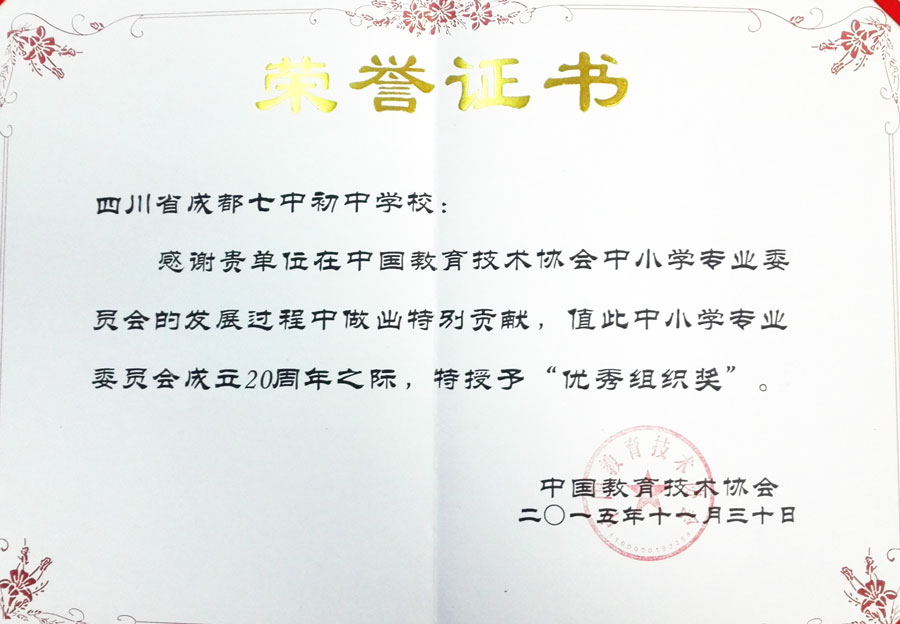 荣誉证书
四川省成都七中初中学校：
感谢贵单位在中国教育技术协会中小学专业委
员会的发展过程中做出特别贡献，值此中小学专业
委员会成立20周年之际，特授予“优秀组织奖”。
中国教育技术协会
二〇一五年十一月三十日